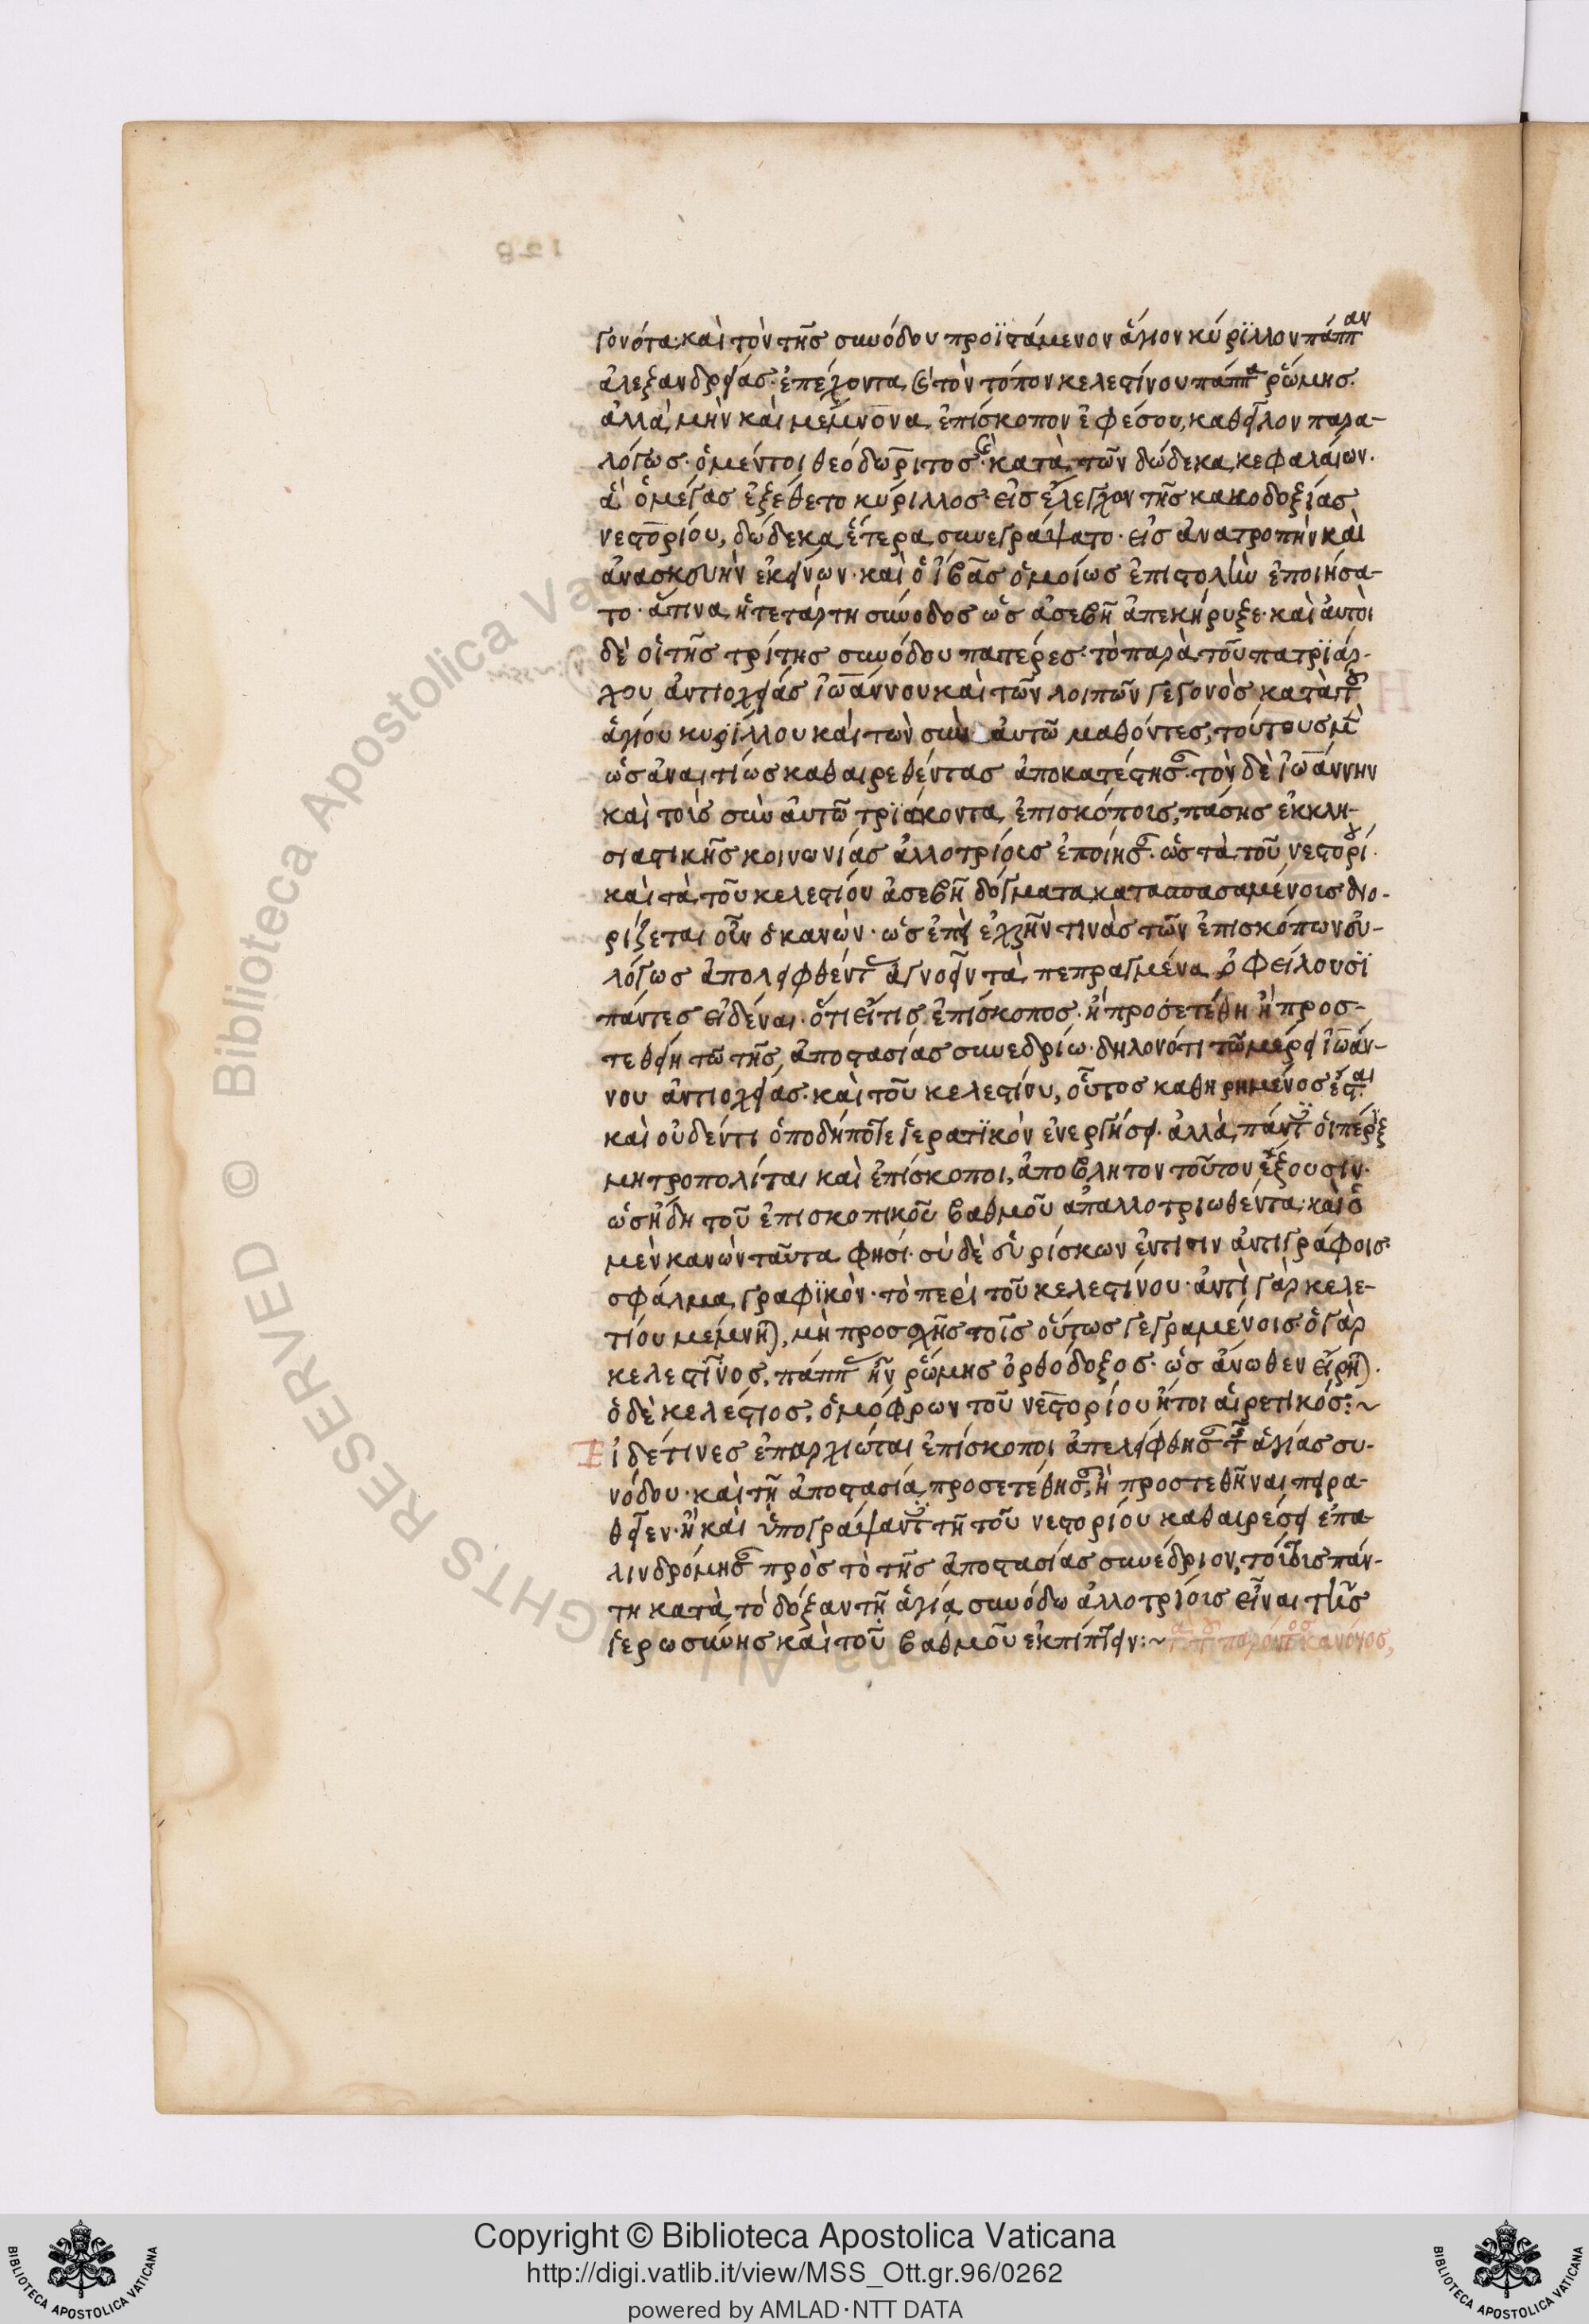 γονότα· καὶ τὸν τῆς συνόδου προϊστάμενον ἅγιον κύριλλον πάππαν
ἀλεξανδρείας· ἐπέχοντα καὶ τὸν τόπον κελεστίνου πάππα ῥώμης.
ἀλλὰ μὴν καὶ μέμνονα ἐπίσκοπον ἐφέσου, καθεῖλον παρα-
λόγως· ὁ μέντοι θεοδώριτος καὶ κατὰ τῶν δώδεκα κεφαλαίων.
ἃ ὁ μέγας ἐξέθετο κύριλλος· εἰς ἔλεγχον τῆς κακοδοξίας
νεστορίου, δώδεκα ἕτερα συνεγράψατο· εἰς ἀνατροπὴν καὶ
ἀνασκευὴν ἐκείνων· καὶ ὁ ἴβας ὁμοίως ἐπιστολὴν ἐποιήσα-
το· ἅτινα ἡ τετάρτη σύνοδος ὡς ἀσεβῆ ἀπεκήρυξε· καὶ αὐτοὶ
δὲ οἱ τῆς τρίτης συνόδου πατέρες· τὸ παρὰ τοῦ πατριάρ-
χου ἀντιοχείας ἰωάννου καὶ τῶν λοιπῶν γεγονὸς κατὰ τοῦ
ἁγίου κυρίλλου καὶ τῶν σὺν αὐτῶ μαθόντες, τούτους μὲν
ὡς ἀναιτίως καθαιρεθέντας ἀποκατέστησαν· τὸν δὲ ἰωάννην
καὶ τοῖς σὺν αὐτῶ τριάκοντα ἐπισκόποις, πάσης ἐκκλη-
σιαστικῆς κοινωνίας ἀλλοτρίους ἐποίησαν· ὡς τὰ τοῦ νεστορίου
καὶ τὰ τοῦ κελεστίου ἀσεβῆ δόγματα κατασπασαμένοις διο-
ρίζεται οὖν ὁ κανών· ὡς ἐπεὶ ἐχρῆν τινὰς τῶν ἐπισκόπων εὐ-
λόγως ἀπολειφθέντας ἀγνοεῖν τὰ πεπραγμένα ὀφείλουσι
πάντες εἰδέναι· ὅτι εἴ τις ἐπίσκοπος· ἢ προσετέθη ἢ προσ-
τεθείη τῶ τῆς ἀποστασίας συνεδρίω· δηλονότι τῶ μέρει ἰωάν-
νου ἀντιοχείας· καὶ τοῦ κελεστίνου, οὗτος καθηρημένος ἔσται
καὶ οὐδέν τι ὁποδήποτε ἱερατικὸν ἐνεργήσει· ἀλλὰ πάντες οἱ πέριξ
μητροπολίται καὶ ἐπίσκοποι, ἀπόβλητον τοῦτον ἕξουσιν·
ὡς ἤδη τοῦ ἐπισκοπικοῦ βαθμοῦ ἀπαλλοτριωθέντα· καὶ ὁ
μὲν κανὼν ταῦτα φησί· σὺ δὲ εὑρίσκων ἔν τισιν ἀντιγράφοις
σφάλμα γραφικόν· τὸ περὶ τοῦ κελεστίνου· ἀντὶ γὰρ κελε-
τίου μέμνηται, μὴ προσχῆς τοῖς οὕτως γεγραμένοις ὁ γὰρ
κελεστῖνος, πάππας ἦν ῥώμης ὀρθόδοξος· ὡς ἄνωθεν εἴρηται.
ὁ δὲ κελέστιος, ὁμόφρων τοῦ νεστορίου ἤτοι αἱρετικός:~
Εἰ δέ τινες ἐπαρχιῶται ἐπίσκοποι ἀπελείφθησαν τῆς ἁγίας συ-
νόδου· καὶ τῆ ἀποστασία προσετέθησαν, ἢ προστεθῆναι πειρα-
θεῖεν· ἢ καὶ ὑπογράψαντες τῆ τοῦ νεστορίου καθαιρέσει ἐπα
λινδρόμησαν πρὸς τὸ τῆς ἀποστασίας συνέδριον, τούτοις πάν-
τη κατὰ τὸ δόξαν τῆ ἁγία συνόδω ἀλλοτρίους εἶναι τῆς
ἱερωσύνης καὶ τοῦ βαθμοῦ ἐκπίπτειν:~ παρόντος κανόνος,
Copyright © Biblioteca Apostolica Vaticana
http://digi.vatlib.it/view/MSS_Ott.gr.96/0262
powered by AMLAD·NTT DATA